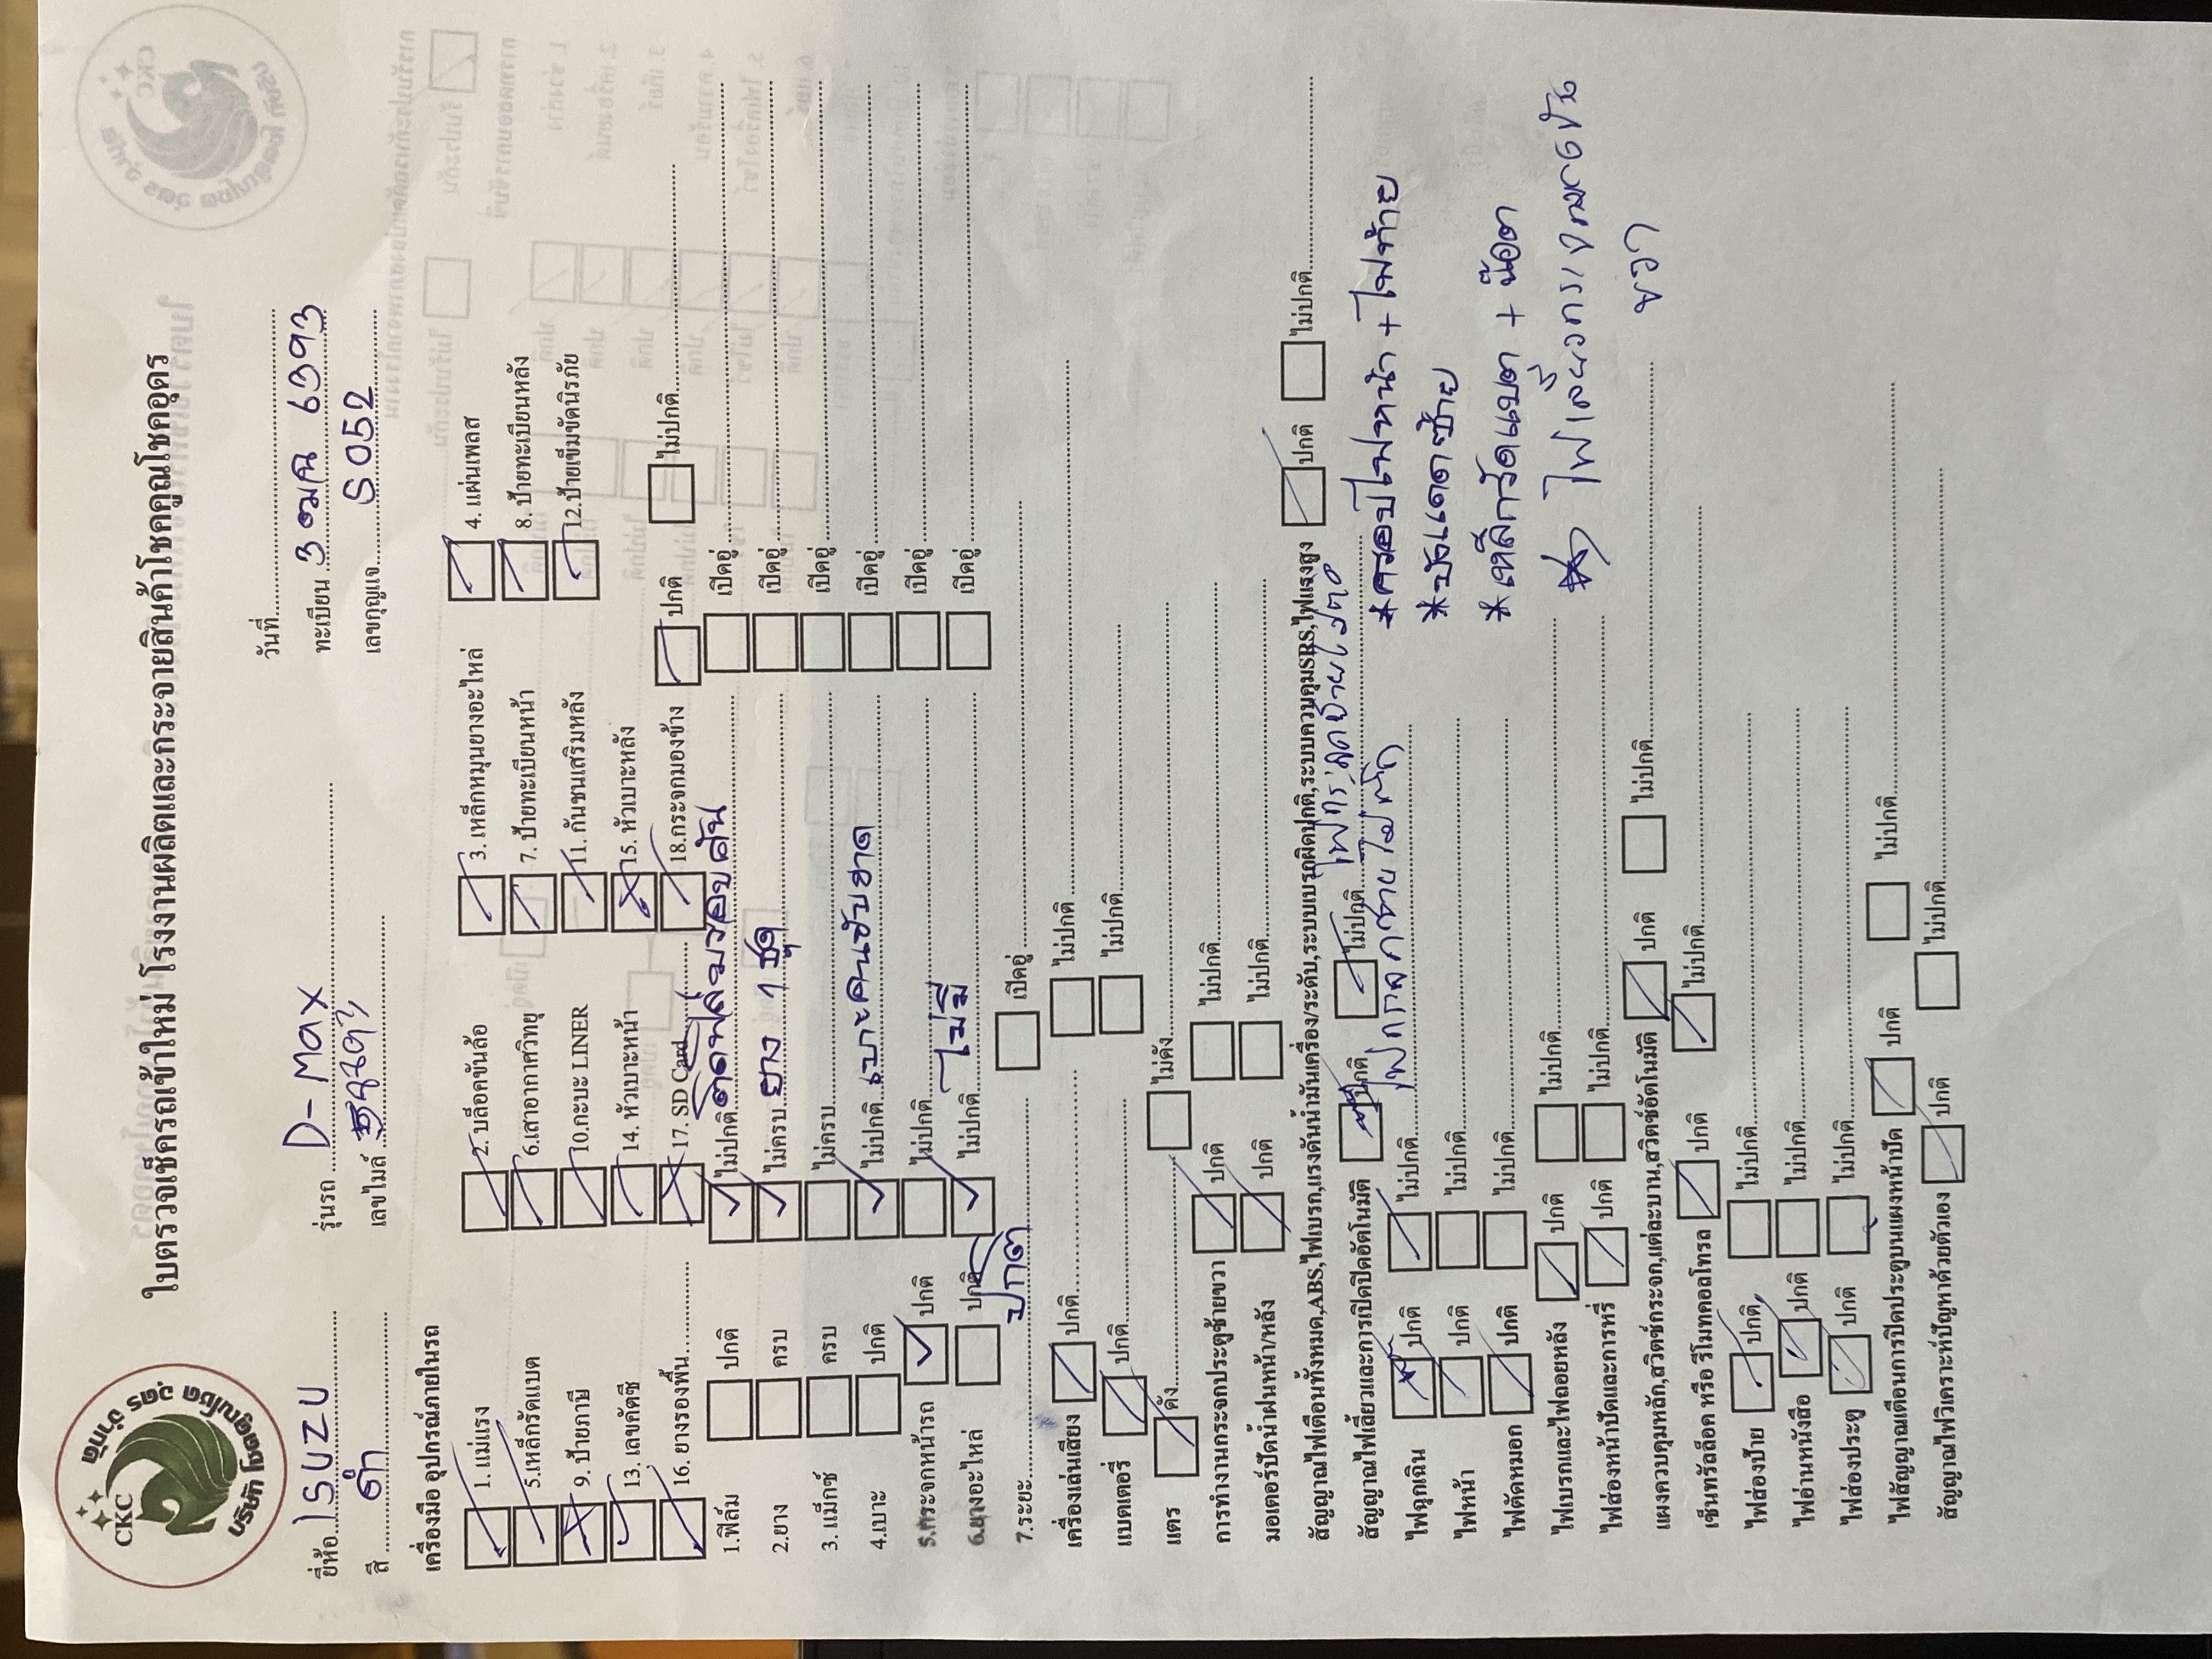 CKC
บริษัท โชคคูณโชค อุดร จำกัด
ใบตรวจเช็ครถเข้าใหม่ โรงงานผลิตและกระจายสินค้าโชคคูณโชคอุดร
วันที่
ยี่ห้อ ISUZU รุ่นรถ D-Max ทะเบียน 3ฒฌ 6393
สี ดำ เลขไมล์ เลขกุญแจ S052
เครื่องมือ อุปกรณ์ภายในรถ
1. แม่แรง 2. บล็อคขันล้อ 3. เหล็กหมุนยางอะไหล่ 4. แผ่นเพลส
5.เหล็กรัดแบต 6.เสาอากาศวิทยุ 7. ป้ายทะเบียนหน้า 8. ป้ายทะเบียนหลัง
9. ป้ายภาษี 10.กะบะ LINER 11. กันชนเสริมหลัง 12.ป้ายเข็มขัดนิรภัย
13. เลขคัตซี 14. หัวเบาะหน้า 15. หัวเบาะหลัง
16. ยางรองพื้น 17. SD Card 18.กระจกมองข้าง ปกติ ไม่ปกติ
1.ฟิล์ม ปกติ ไม่ปกติ ติดฟิล์มรอบคัน เปิดคู่
2.ยาง ครบ ไม่ครบ ยาง 1 ชุด เปิดคู่
3. แม็กซ์ ครบ ไม่ครบ เปิดคู่
4.เบาะ ปกติ ไม่ปกติ เบาะคนขับขาด เปิดคู่
5.กระจกหน้ารถ ปกติ ไม่ปกติ เปิดคู่
6.ยางอะไหล่ ปกติ ไม่ปกติ ไม่มี เปิดคู่
7.ระยะ ปกติ เปิดคู่
เครื่องเล่นเสียง ปกติ ไม่ปกติ
แบตเตอรี่ ปกติ ไม่ปกติ
แตร ดัง ไม่ดัง
การทำงานกระจกประตูซ้ายขวา ปกติ ไม่ปกติ
มอเตอร์ปัดน้ำฝนหน้า/หลัง ปกติ ไม่ปกติ
สัญญาณไฟเตือนทั้งหมด,ABS,ไฟเบรก,แรงดันน้ำมันเครื่อง/ระดับ,ระบบเบรกผิดปกติ,ระบบควบคุมSRS,ไฟแรงสูง ปกติ ไม่ปกติ
สัญญาณไฟเลี้ยวและการเปิดปิดอัตโนมัติ ปกติ ไม่ปกติ
*ครอบไฟหน้า + ไฟท้าย
ไฟฉุกเฉิน ปกติ ไม่ปกติ
*บังแดดซ้าย
ไฟหน้า ปกติ ไม่ปกติ
*เหล็กรัดแบต + น๊อต
ไฟตัดหมอก ปกติ ไม่ปกติ
ไฟเบรกและไฟถอยหลัง ปกติ ไม่ปกติ
ไฟส่องหน้าปัดและการหรี่ ปกติ ไม่ปกติ
ขวา
แผงควบคุมหลัก,สวิตซ์กระจก,แต่ละบาน,สวิตซ์อัตโนมัติ ปกติ ไม่ปกติ
เซ็นทรัลล็อค หรือ รีโมทคอลโทรล ปกติ ไม่ปกติ
ไฟส่องป้าย ปกติ ไม่ปกติ
ไฟอ่านหนังสือ ปกติ ไม่ปกติ
ไฟส่องประตู ปกติ ไม่ปกติ
ไฟสัญญาณเตือนการปิดประตูบนแผงหน้าปัด ปกติ ไม่ปกติ
สัญญาณไฟวิเคราะห์ปัญหาด้วยตัวเอง ปกติ ไม่ปกติ